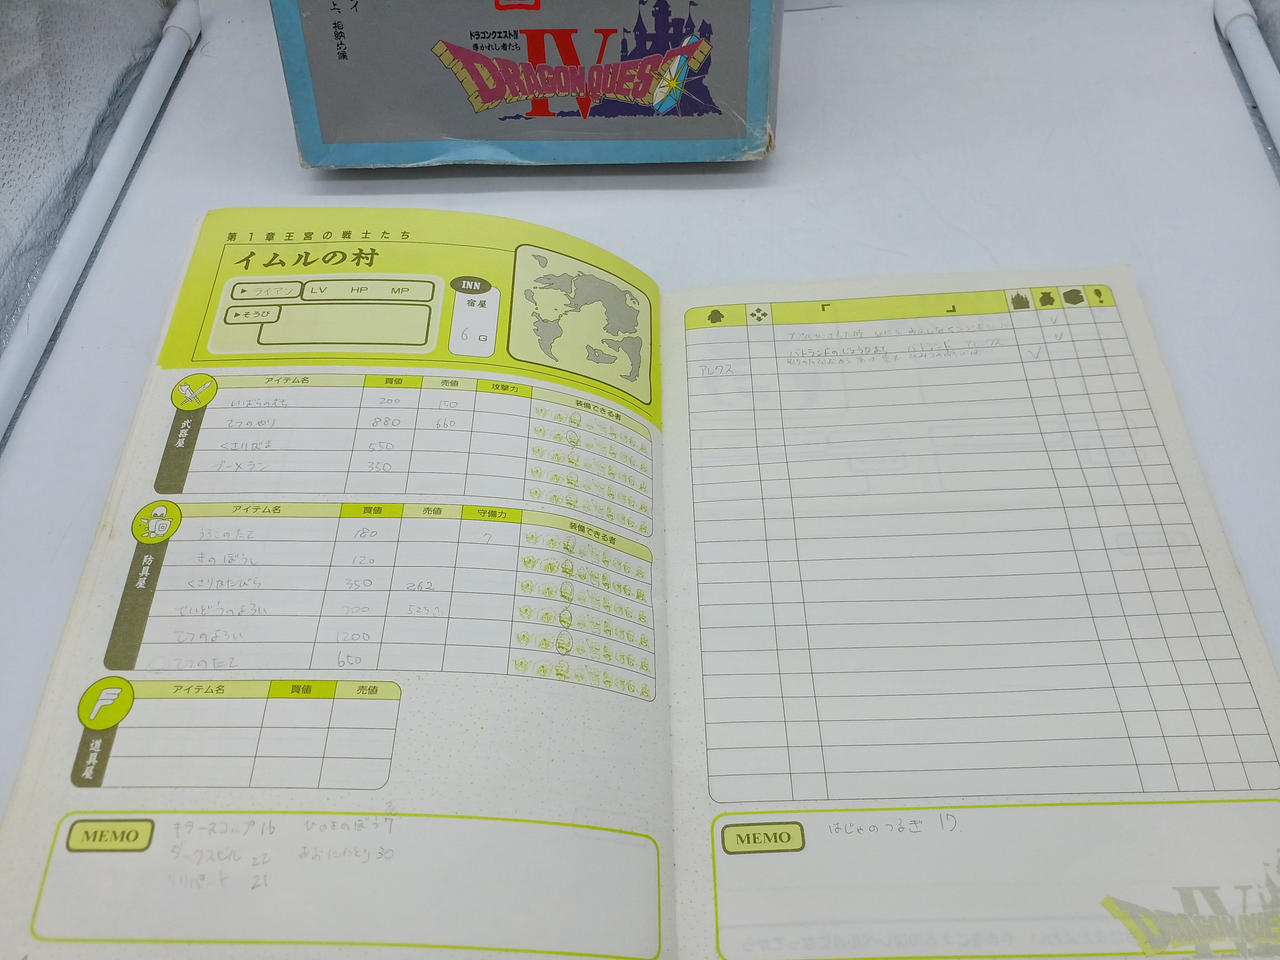 上、相納め候
ドラゴンクエストIV
導かれし者たち
DRAGON QUEST
IV
第1章王宮の戦士たち
イムルの村
▶ライアン LV HP MP
▶そうび
INN
宿屋
6 G
武器屋
アイテム名 買値 売値 攻撃力 装備できる者
いばらのむち 200 150
てつのやり 880 660
くさりがま 550
ブーメラン 350
防具屋
アイテム名 買値 売値 守備力 装備できる者
うろこのたて 180 7
きのぼうし 120
くさりかたびら 350 262
せいどうのよろい 700
てつのよろい 1200
てつのたて 650
道具屋
アイテム名 買値 売値
MEMO
キラースコップ 16 ひのきのぼう 7
ダックスビル 22 あおにわとり 30
リリパット 21
「 」
アレクス
MEMO
はじゃのつるぎ 17
DRAGON QUEST
IV